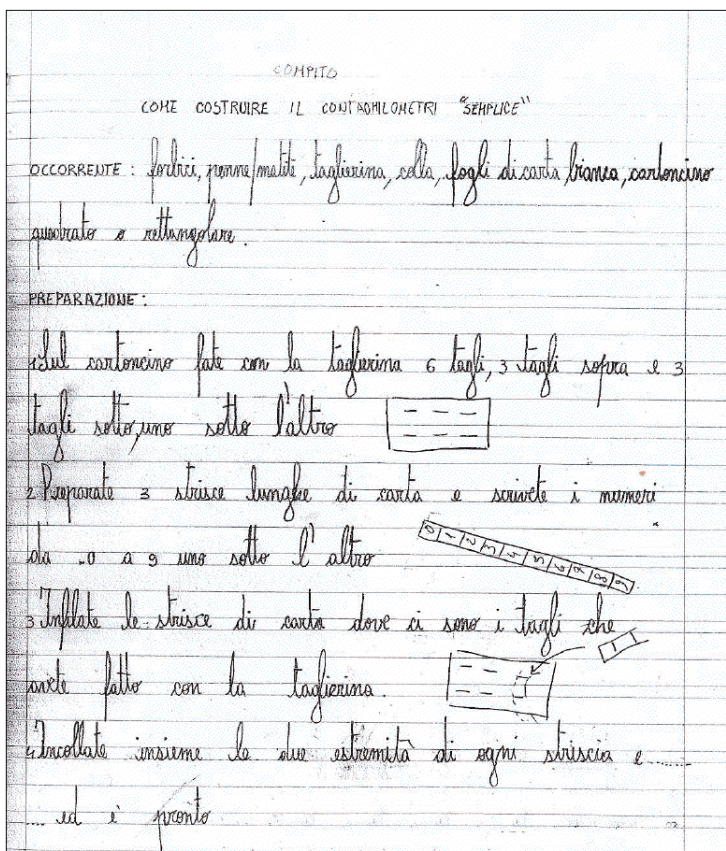 COMPITO
COME COSTRUIRE IL CONTACHILOMETRI "SEMPLICE"
OCCORRENTE: forbici, penne/matite, taglierina, colla, fogli di carta bianca, cartoncino
quadrato o rettangolare.
PREPARAZIONE:
1 Sul cartoncino fate con la taglierina 6 tagli, 3 tagli sopra e 3
tagli sotto, uno sotto l'altro
2 Preparate 3 strisce lunghe di carta e scrivete i numeri
da 0 a 9 uno sotto l'altro
0 1 2 3 4 5 6 7 8 9
3 Infilate le strisce di carta dove ci sono i tagli che
avete fatto con la taglierina.
4 Incollate insieme le due estremità di ogni striscia e ......
.... ed è pronto